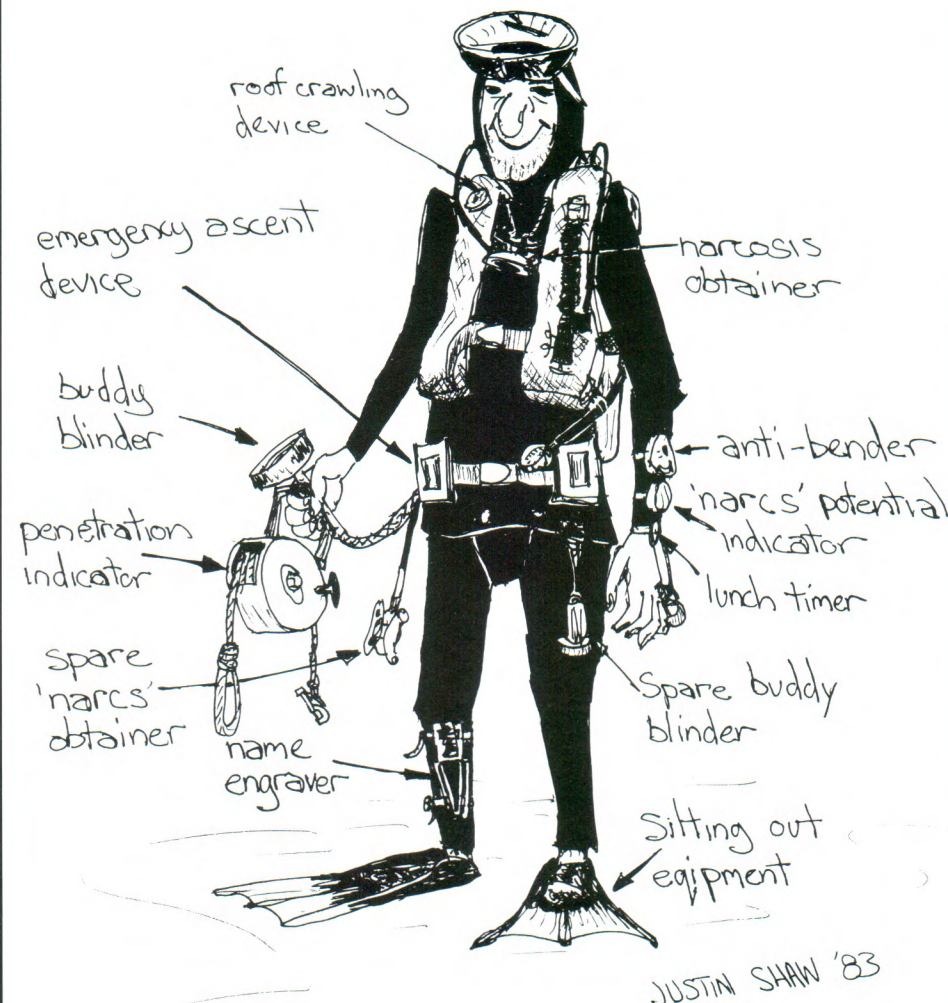 roof crawling
device
emergency ascent
device
narcosis
obtainer
buddy
blinder
anti-bender
'narcs' potential
indicator
penetration
indicator
lunch timer
spare
'narcs'
obtainer
Spare buddy
blinder
name
engraver
Silting out
eqipment
JUSTIN SHAW '83